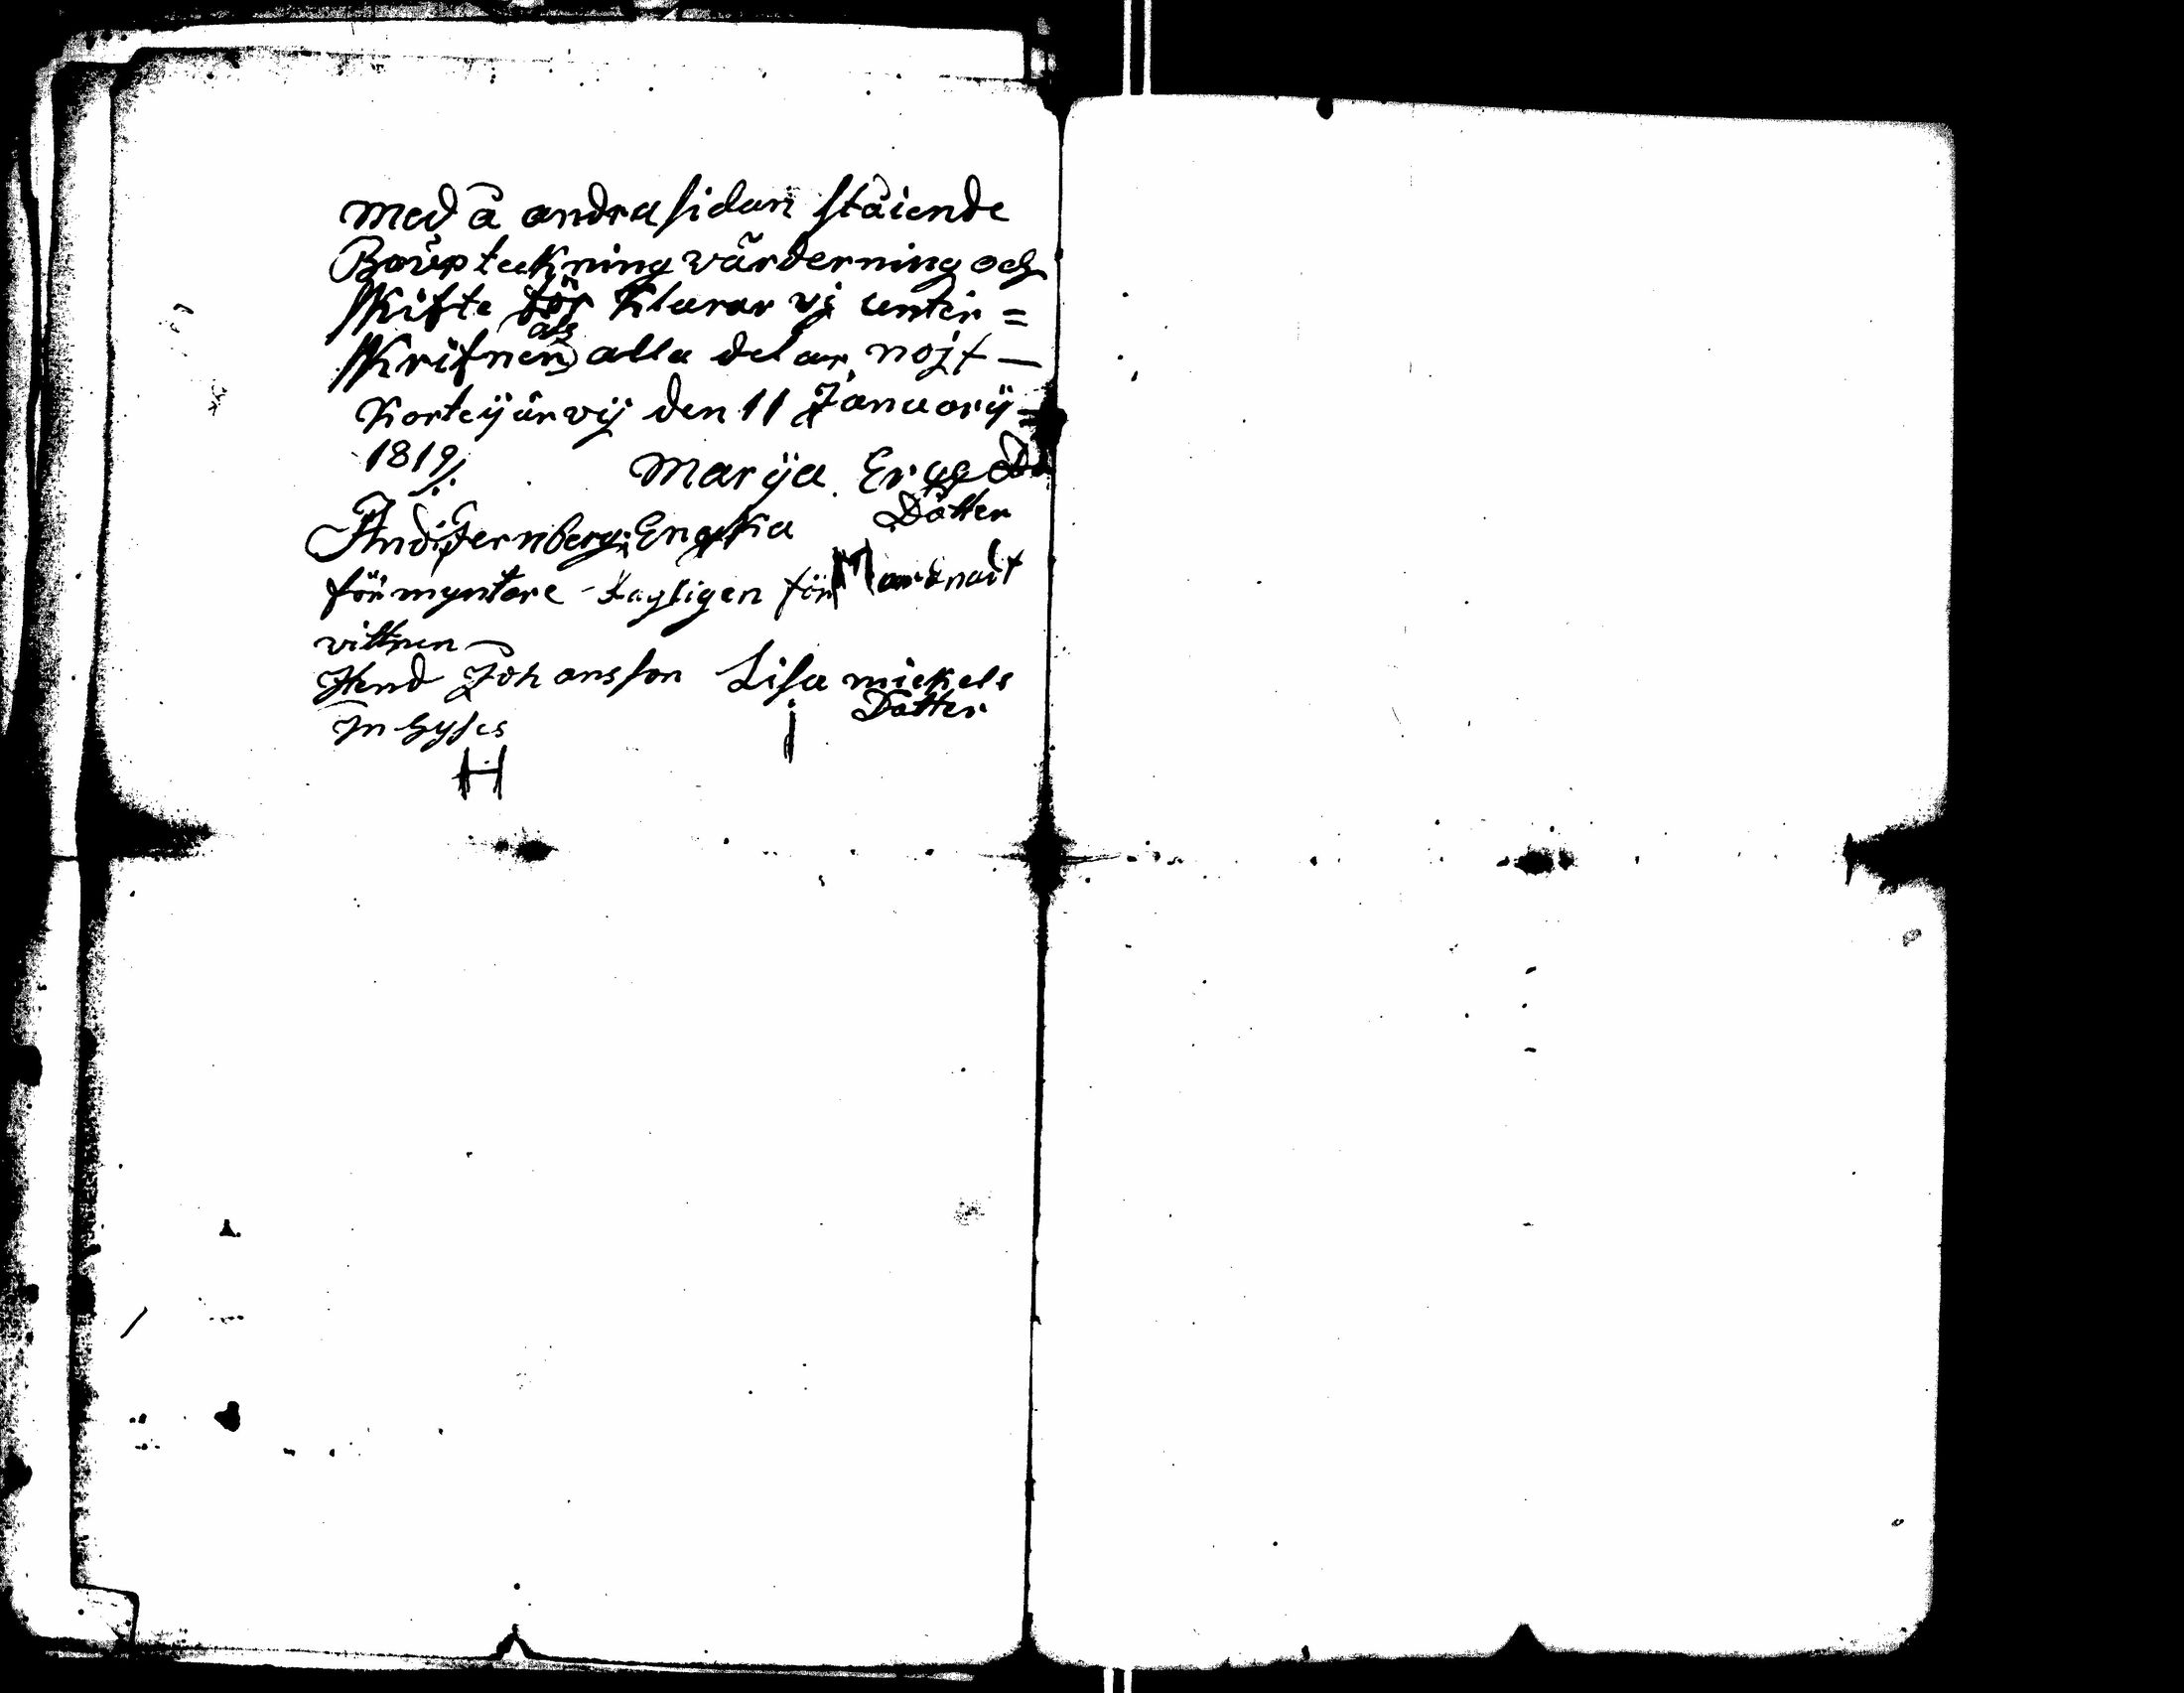 med å andra sidan ståiende
Boupteckning värderning och
skifte för Klarar vi unter =
skrifnen als alla delar nöjt —
Korteijärvij den 11 Januarij
1819
Marija Ersgs
Dotter
Andi Jernberg Engkia
förmyntare lagligen för Marknait
vittnen
Hend Johansson Lisa mickels
Dotter
In hyses
H